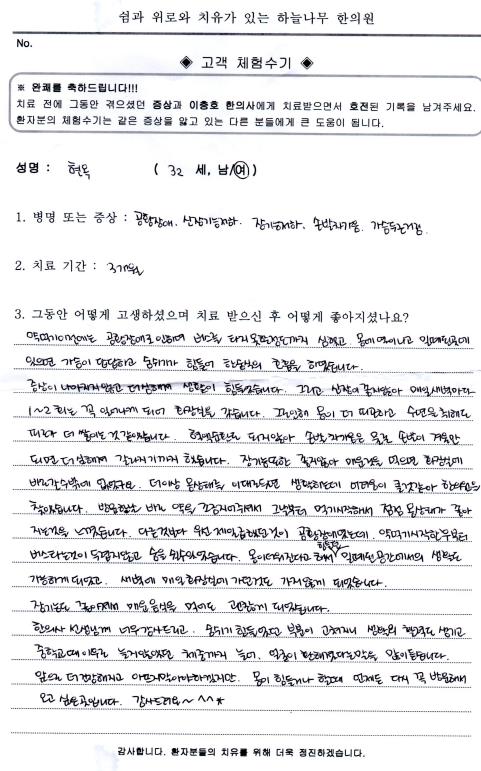 쉼과 위로와 치유가 있는 하늘나무 한의원
No.
◈ 고객 체험수기 ◈
※ 완쾌를 축하드립니다!!!
치료 전에 그동안 겪으셨던 증상과 이충호 한의사에게 치료받으면서 호전된 기록을 남겨주세요.
환자분의 체험수기는 같은 증상을 앓고 있는 다른 분들에게 큰 도움이 됩니다.
성명 : 현옥 ( 32 세, 남/여)
1. 병명 또는 증상 : 공황장애, 신장기능저하. 장기능저하, 손발차가움, 가슴두근거림.
2. 치료 기간 : 3개월
3. 그동안 어떻게 고생하셨으며 치료 받으신 후 어떻게 좋아지셨나요?
약먹기이전에는 공황장애로 인하여 버스를 타지 못할정도까지 심했고 몸에 열이나고 밀폐된곳에
있으면 가슴이 답답하고 숨쉬기가 힘들어 한숨식의 호흡을 하였습니다.
증상이 나아지지않고 더심해져 생활이 힘들었습니다. 그리고 신장이 좋지않아 매일새벽마다
1~2회는 꼭 일어나게 되어 화장실을 갔습니다. 그로인해 몸이 더 피곤하고 수면을 취해도
피로가 더 쌓이는것같았습니다. 혈액순환도 되지않아 손발 차가움은 물론 손발이 겨울만
되면 더심해져 갈라지기까지 했습니다. 장기능또한 좋지않아 매운것을 먹으면 화장실에
바로갈수밖에 없었구요. 더이상 몸상태를 이대로두면 생활하는데 어려움이 클것같아 한의원을
찾았습니다. 방문할때 바로 약을 건강지어주셔서 그날부터 먹기시작해서 점점 몸상태가 좋아
지는것을 느꼈습니다. 다른것보다 우선 제일급했던것이 공황장애였는데, 약먹기시작한후부터
버스타는것이 두렵지않고 숨을 쉴수있었습니다. 몸이더워진다고 해서 힘들었던 밀폐된공간에서의 생활도
가능하게 되었고, 새벽에 매일 화장실에 가던것도 가지않게 되었습니다.
장기능도 좋아져서 매운음식을 먹어도 괜찮게 되었습니다.
한의사 선생님께 너무 감사드리고. 숨쉬기 힘들었던 부분이 고쳐지니 생활의 활력도 생기고
중학교때 이후로 늘지않았던 체중까지 늘어, 얼굴이 환해졌다는말을 많이듣습니다.
앞으로 더건강해지고 아프지말아야하겠지만. 몸이 힘들거나 할때 언제든 다시 꼭 방문해서
오고 싶은곳입니다. 감사드려요~ ^^*
감사합니다. 환자분들의 치유를 위해 더욱 정진하겠습니다.